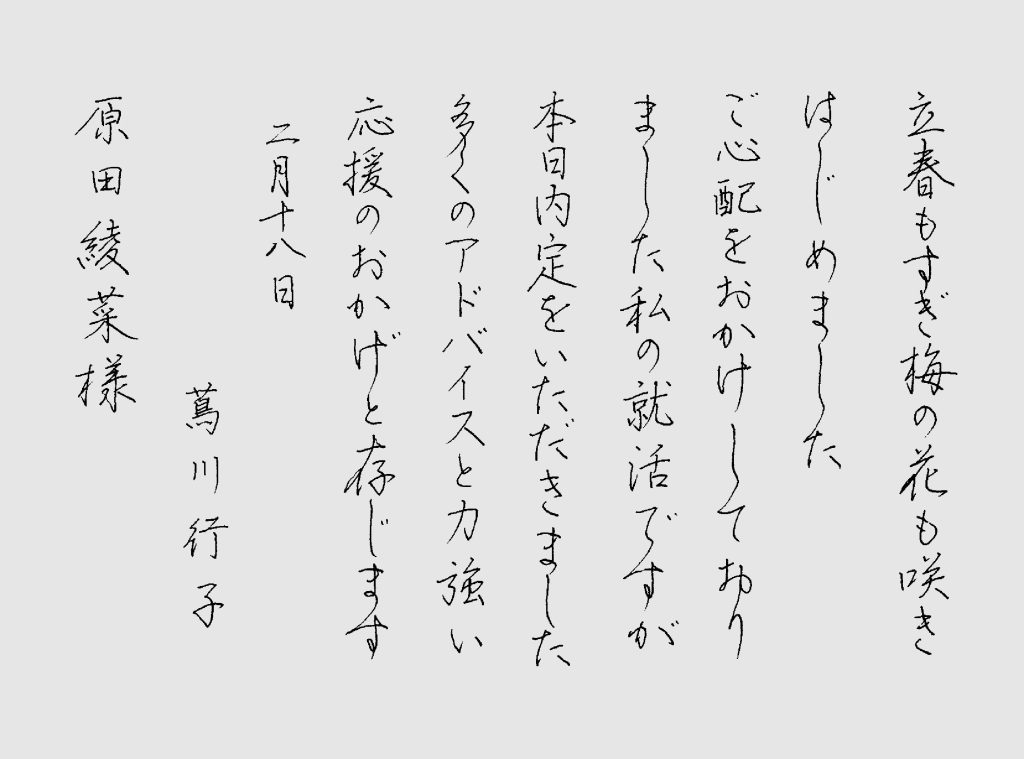 立春もすぎ梅の花も咲き
はじめました
ご心配をおかけしており
ました私の就活ですが
本日内定をいただきました
多くのアドバイスと力強い
応援のおかげと存じます
二月十八日
蔦川行子
原田綾菜様